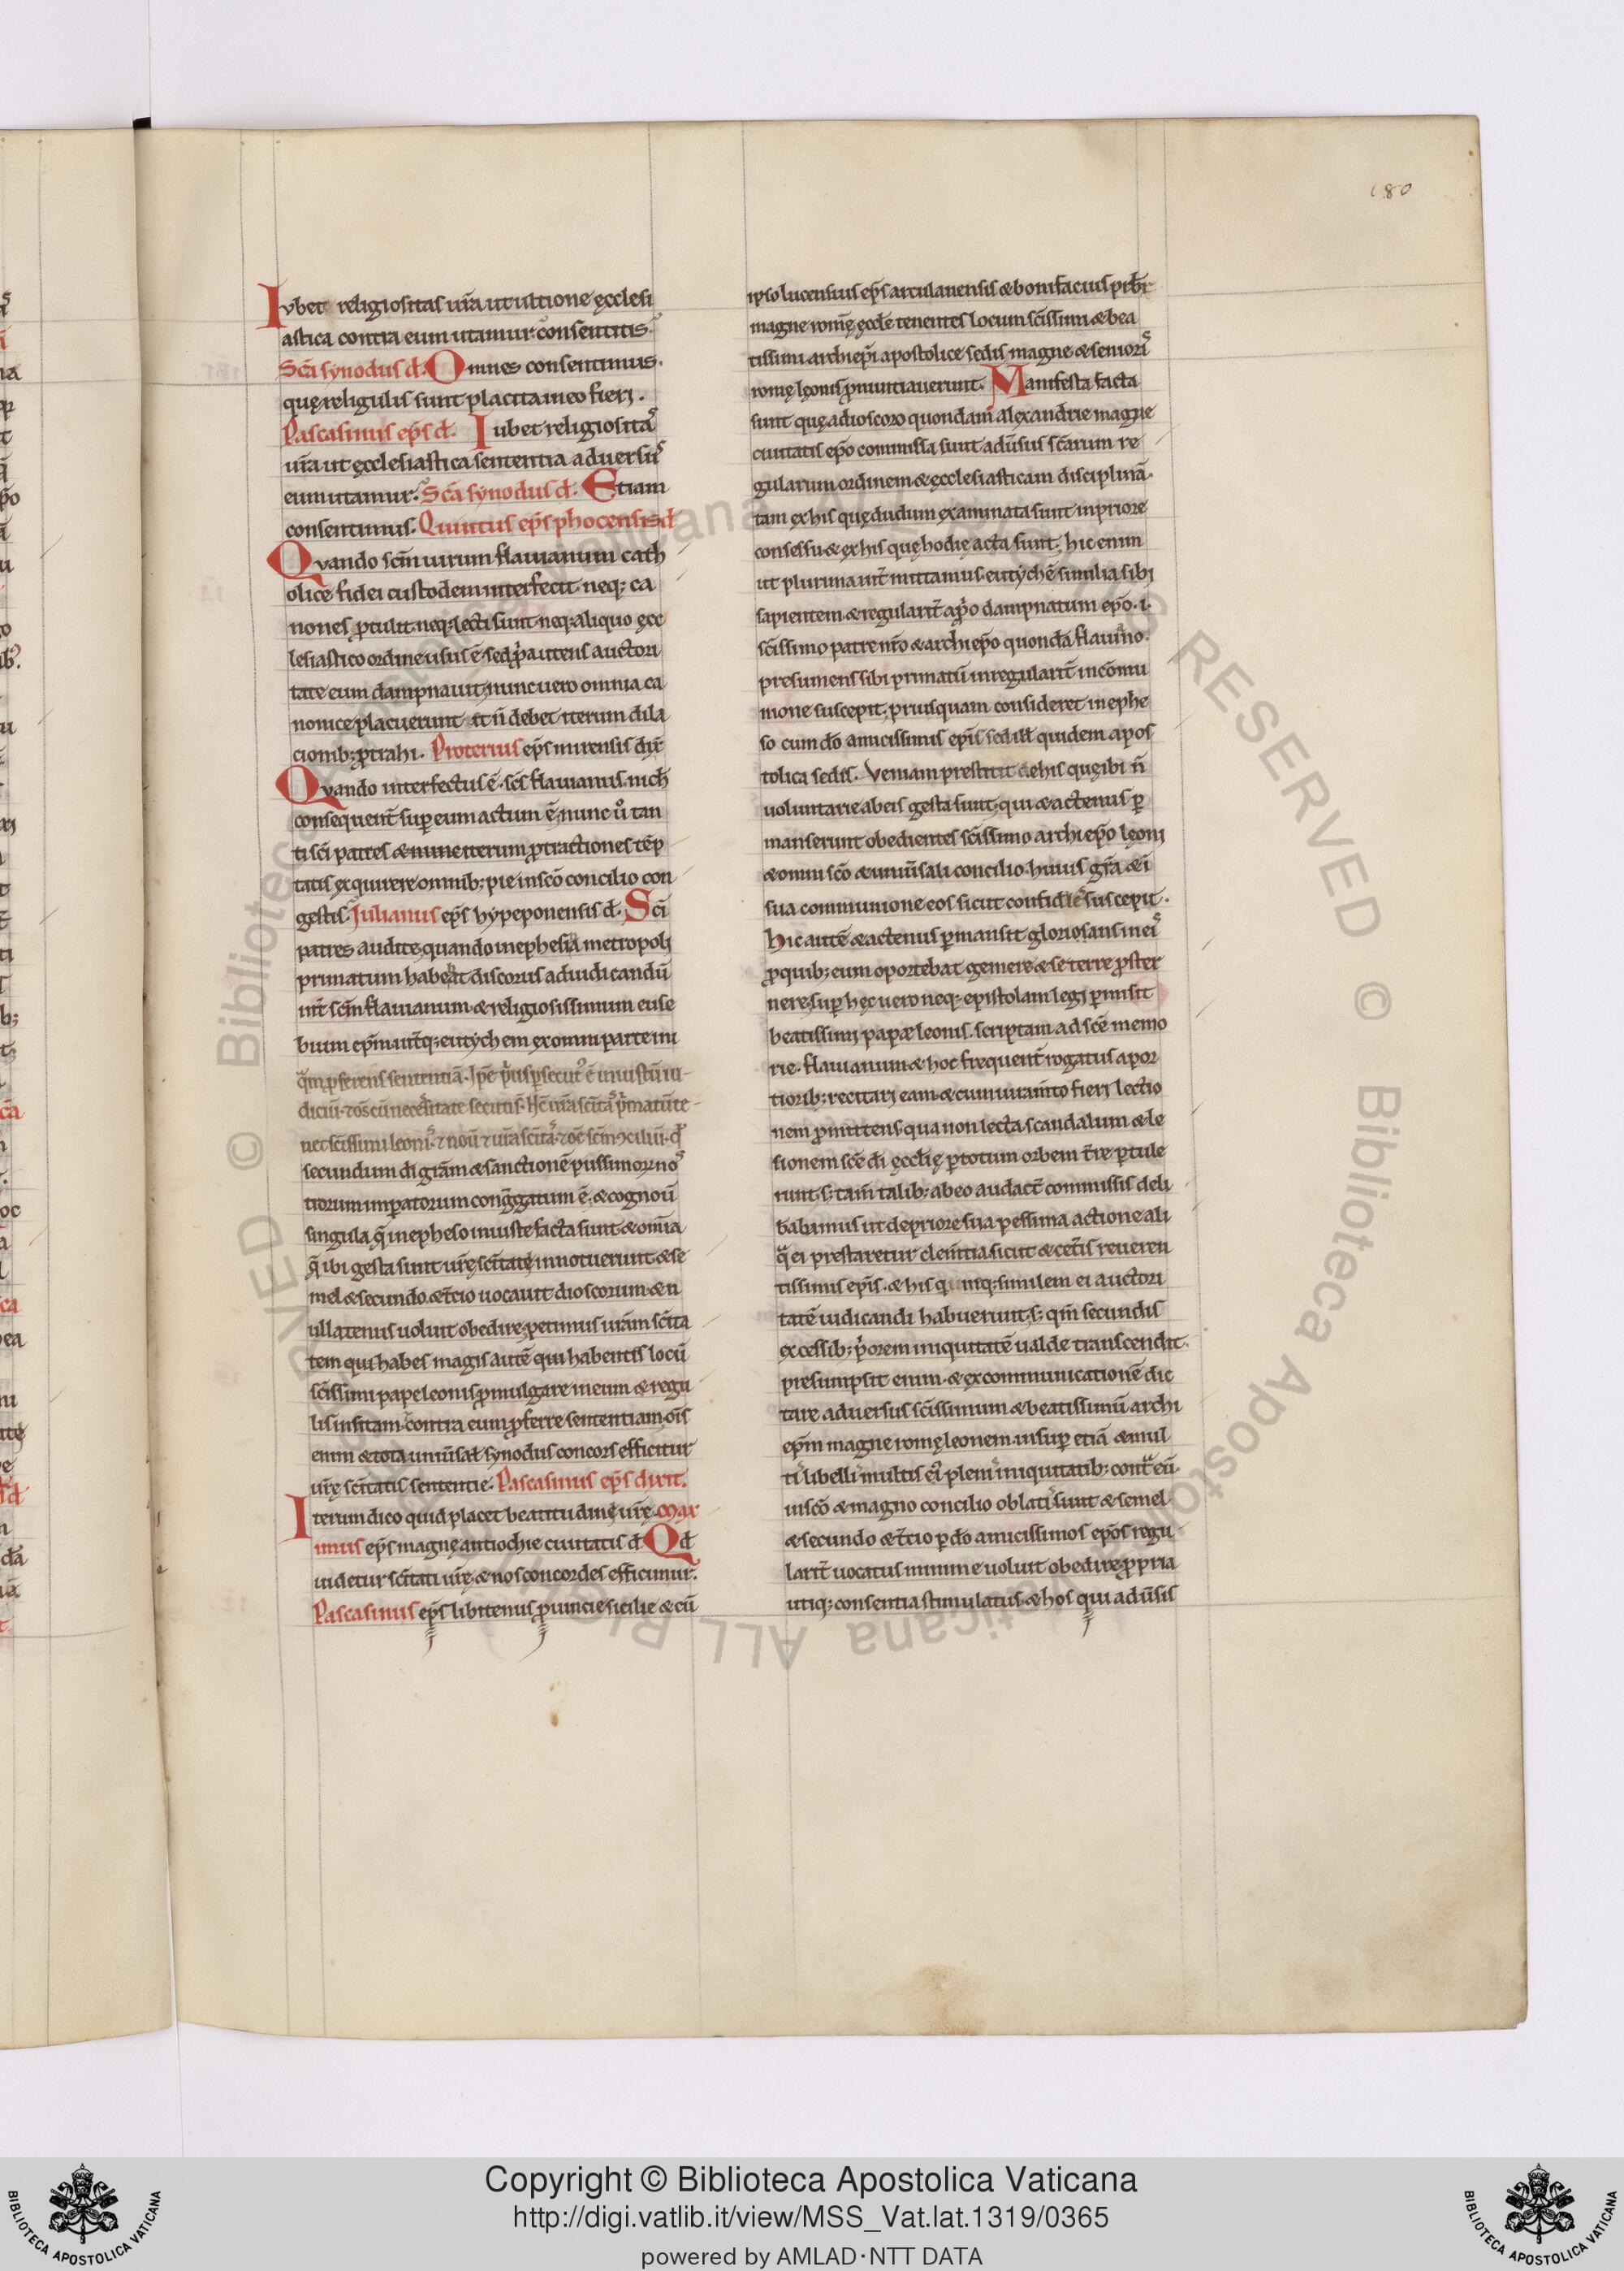 180
Iubet religiositas ur̄a ut ultione ęcclesi
astica contra eum utamur consentitis.
Sc̄a synodus d̄. Omnes consentimus.
quę religulis sunt placita in eo fieri.
Pascasinus ep̄s d̄. Iubet religiositas
ur̄a ut ęcclesiastica sententia aduersus
eum utamur. Sc̄a synodus d̄. Etiam
consentimus. Quintus ep̄s phocensis d̄
Quando sc̄m uirum flauianum cath
olicę fidei custodem interfecit. neq; ca
nones ꝓtulit. neq; lecti sunt neq; aliquo ęcc
lesiastico ordine usus ē. sed ꝓ̄a utens auctori
tate eum dampnauit; nunc uero omnia ca
nonice placuerunt. et n̄ debet iterum dila
cionib; ꝓtrahi. Proterius ep̄s mirensis dix̄
Quando interfectus ē. sc̄s flauianus. nich̄
consequent̄ suꝑ eum actum ē; nunc ů tan
ti sc̄i patres & nunc iterum ꝓtractiones tēp
tatis exquirere omnib; pie in sc̄o concilio con
gestis. Iulianus ep̄s hypeponensis d̄. Sc̄i
patres audite, quando in ephesia metropoli
primatum habeat discorus ad iudicandū
int̄ sc̄m flauianum & religiosissimum euse
bium ep̄m utrq; eutychem ex omni parte ini
secundum dī grām & sanctionē piissimorū no
strorum imꝑatorum congregatum ē. & cognoū
singula q̄ in epheso iniuste facta sunt & omīa
q̄ ibi gesta sunt ur̄ę sc̄itatę innotuerunt & se
mel & secundo & t̄cio uocauit dioscorum & n
ullatenus uoluit obedire; petimus ur̄am sc̄ita
tem qui habes magis autē qui habentis locū
sc̄issimi pape leonis ꝓmulgare in eum & regu
lis insitam contra eum ꝓferre sententiam. oīs
enim & tota uniūsal̄ synodus concors efficitur
ur̄ę sc̄itatis sententie. Pascasinus ep̄s dixit.
Iterum dico quid placet beatitudinę ur̄ę. Max
imus ep̄s magnę antiochie ciuitatis d̄. Qd̄
uidetur sc̄itati ur̄ę & nos concordes efficimur.
Pascasinus ep̄s libitenus ꝓuincie sicilie & cū
ipso lucensius ep̄s arculanensis & bonifacius prb̄r
magne romę ęccl̄e tenentes locum sc̄issimi & bea
tissimi archiep̄i apostolice sedis magne & senioris
romę leonis ꝓnuntiauerunt. Manifesta facta
sunt quę a dioscoro quondam alexandrie magne
ciuitatis ep̄o commissa sunt adūsus sc̄arum re
gularum ordinem & ęcclesiasticam disciplinā.
tam ex his quę dudum examinata sunt in priore
consessu & ex his quę hodię acta sunt. hic enim
ut plurima int̄ mittamus. eutychē similia sibi
sapientem & regularit̄ a ꝓ̄o dampnatum ep̄o. i.
sc̄issimo patre nr̄o & archiep̄o quondā flauiano.
presumens sibi primatū inregularit̄ in comu
nione suscepit, priusquam consideret in ephe
so cum dō amicissimis ep̄is sed ill̄ quidem apos
tolica sedis. Veniam prestitit de his quę ibi n̄
uoluntarie ab eis gesta sunt, qui & actenus ꝑ
manserunt obedientes sc̄issimo archiep̄o leoni
& omni sc̄o & uniūsali concilio. huius gr̄a & ī
sua communione eos sicut confid̄ suscepit.
hic autē & actenus ꝑmansit glorios ans in eis
ꝓ quib; eum oportebat gemere & se terre ꝓster
nere. suꝑ hęc uero neq; epistolam legi ꝑmisit
beatissimi papæ leonis. scriptam ad scē memo
rie. flauianum & hoc frequent̄ rogatus a por
tiorib; recitari eam & cum iuram̄to fieri lectio
nem ꝓmittens qua non lecta scandalum & le
sionem scē dī ęccl̄ię ꝑ totum orbem t̄re ꝑtule
runt. s; tam̄ talib; ab eo audact̄ commissis deli
b̄abimus ut de priore sua pessima actione ali
q̄ ei prestaretur clem̄tia sicut & cet̄is reueren
tissimis ep̄is. & his qui niq; similem ei auctori
tatē iudicandi habuerunt, s; qm̄ secundis
excessib; p̄orem iniquitatē ualde transcendit.
presumpsit enim. & excommunicationē dic
tare aduersus sc̄issimum & beatissimū archi
ep̄m magne romę leonem insuꝑ etiā & mul
ti libelli multis ei pleni iniquitatib; contᵃ eū.
in sc̄o & magno concilio oblati sunt & semel
& secundo & t̄cio ꝑ dō amicissimos ep̄os regu
larit̄ uocatus minime uoluit obedire. ꝓpria
utiq; consentia stimulatus. & hos qui adūsis
Copyright © Biblioteca Apostolica Vaticana
http://digi.vatlib.it/view/MSS_Vat.lat.1319/0365
powered by AMLAD·NTT DATA